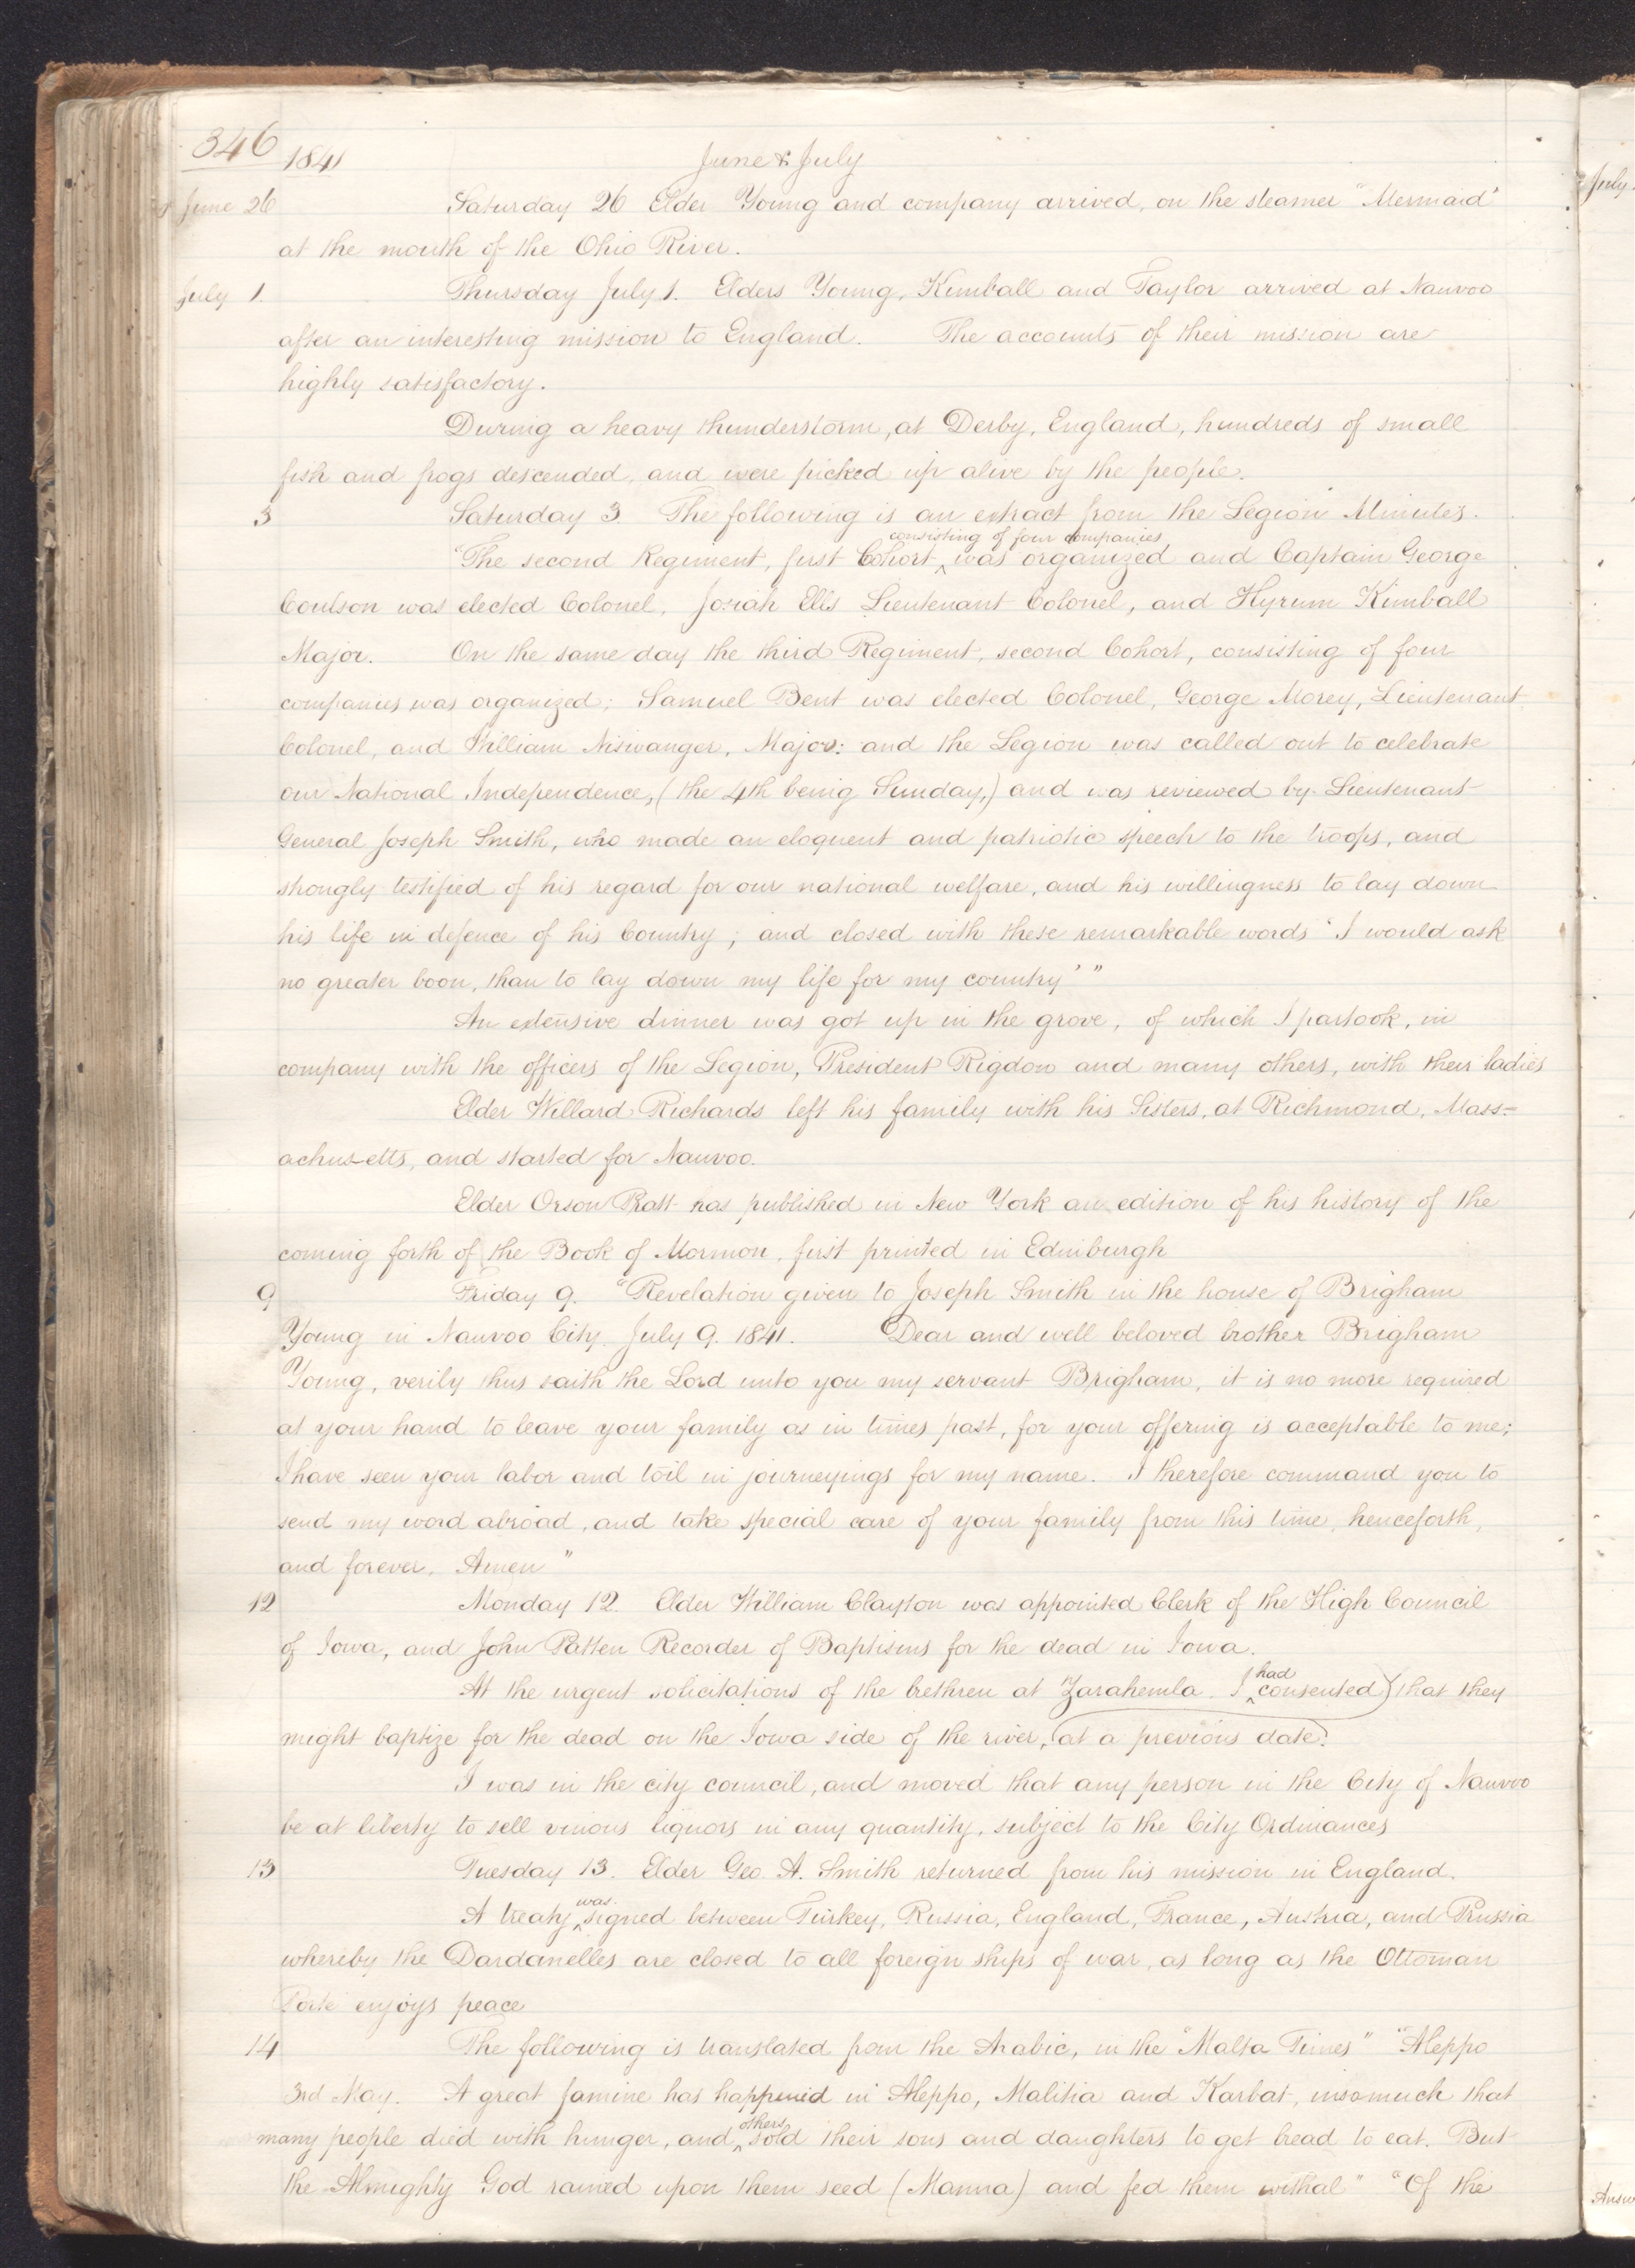 346 1841 June & July
June 26 Saturday 26 Elder Young and company arrived, on the steamer "Mermaid"
at the mouth of the Ohio River.
July 1 Thursday July 1. Elders Young, Kimball and Taylor arrived at Nauvoo
after an interesting mission to England. The accounts of their mission are
highly satisfactory.
During a heavy thunderstorm, at Derby, England, hundreds of small
fish and frogs descended, and were picked up alive by the people.
3 Saturday 3. The following is an extract from the Legion Minutes.
consisting of four companies
"The second Regiment, first Cohort ^ was organized and Captain George
Coulson was elected Colonel, Josiah Ells Lieutenant Colonel, and Hyrum Kimball
Major. On the same day the third Regiment, second Cohort, consisting of four
companies was organized; Samuel Bent was elected Colonel, George Morey, Lieutenant
Colonel, and William Niswanger, Major: and the Legion was called out to celebrate
our National Independence, (the 4th being Sunday,) and was reviewed by Lieutenant
General Joseph Smith, who made an eloquent and patriotic speech to the troops, and
strongly testified of his regard for our national welfare, and his willingness to lay down
his life in defence of his Country; and closed with these remarkable words 'I would ask
no greater boon, than to lay down my life for my country'"
An extensive dinner was got up in the grove, of which I partook, in
company with the officers of the Legion, President Rigdon and many others, with their ladies
Elder Willard Richards left his family with his Sisters, at Richmond, Mass=
achusetts, and started for Nauvoo.
Elder Orson Pratt has published in New York an edition of his history of the
coming forth of the Book of Mormon, first printed in Edinburgh
9 Friday 9. "Revelation given to Joseph Smith in the house of Brigham
Young in Nauvoo City. July 9. 1841. Dear and well beloved brother Brigham
Young, verily thus saith the Lord unto you my servant Brigham, it is no more required
at your hand to leave your family as in times past, for your offering is acceptable to me;
I have seen your labor and toil in journeyings for my name. I therefore command you to
send my word abroad, and take special care of your family from this time, henceforth,
and forever. Amen"
12 Monday 12. Elder William Clayton was appointed Clerk of the High Council
of Iowa, and John Patten Recorder of Baptisms for the dead in Iowa.
had
At the urgent solicitations of the brethren at Zarahemla. I ^ consented) that they
might baptize for the dead on the Iowa side of the river, (at a previous date).
I was in the city council, and moved that any person in the City of Nauvoo
be at liberty to sell vinous liquors in any quantity, subject to the City Ordinances
13 Tuesday 13. Elder Geo. A. Smith returned from his mission in England.
was
A treaty ^ signed between Turkey, Russia, England, France, Austria, and Prussia
whereby the Dardanelles are closed to all foreign ships of war, as long as the Ottoman
Porte enjoys peace
14 The following is translated from the Arabic, in the "Malta Times" "Aleppo
3rd May. A great famine has happened in Aleppo, Malitia and Karbat, insomuch that
others
many people died with hunger, and ^ sold their sons and daughters to get bread to eat. But
the Almighty God rained upon them seed (Manna) and fed them withal" "Of the
July
Answ